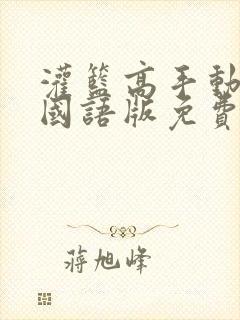 灌籃高手動
國語版免費
蔣旭峰